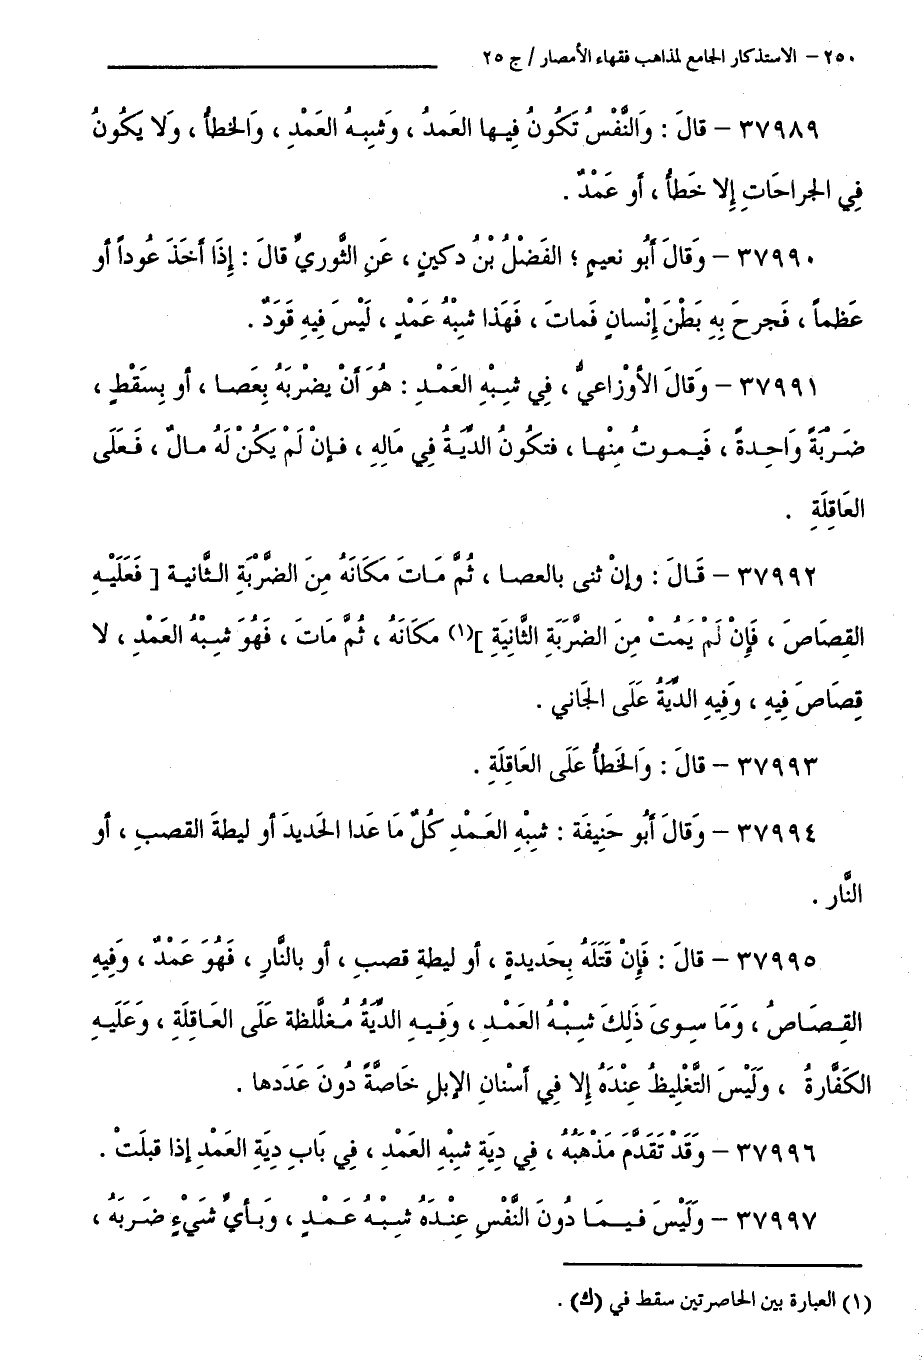 ٢٥٠ – الاستذكار الجامع لمذاهب فقهاء الأمصار / ج ٢٥
٣٧٩٨٩ – قالَ : وَالنَّفْسُ تَكُونُ فِيها العَمدُ ، وَشبِهُ العَمْدِ ، وَالخطأُ ، وَلا يَكونُ
فِي الجراحَاتِ إِلا خَطأٌ ، أو عَمْدٌ .
٣٧٩٩٠ – وَقالَ أَبُو نعيمٍ ؛ الفَضْلُ بْنُ دكينٍ ، عَنِ الثَّوريِّ قالَ : إِذَا أَخَذَ عُوداً أو
عَظماً ، فَجرحَ بِهِ بَطْنَ إِنْسانٍ فَماتَ ، فَهَذا شبِهُ عَمْدٍ ، لَيْسَ فِيهِ قَودٌ .
٣٧٩٩١ – وَقالَ الأوْزاعيُّ ، فِي شبِهِ العَمْدِ : هُوَ أَنْ يضْربَهُ بِعَصا ، أو بِسَقْطٍ ،
ضَربَةً وَاحِدةً ، فَيموتُ مِنْها ، فتكونُ الدِّيَةُ فِي مَالِهِ ، فإنْ لَمْ يَكُنْ لَهُ مالٌ ، فَعلَى
العَاقِلَةِ .
٣٧٩٩٢ – قَالَ : وإنْ ثنى بالعصا ، ثُمَّ مَاتَ مَكَانَهُ مِنَ الضَّرْبَةِ الثَّانيةِ [ فَعَلَيْهِ
القِصَاصُ ، فَإِنْ لَمْ يَمُتْ مِنَ الضَّربَةِ الثَّانِيَةِ ](١) مكَانَهُ ، ثُمَّ مَاتَ ، فَهُوَ شبِهُ العَمْدِ ، لا
قِصَاصَ فِيهِ ، وَفِيهِ الدِّيَةُ عَلَى الجَاني .
٣٧٩٩٣ – قالَ : وَالخَطأُ عَلَى العَاقِلَةِ .
٣٧٩٩٤ – وَقالَ أَبُو حَنِيفَة : شبِهُ العَمْدِ كُلُّ مَا عَدا الحَديدَ أو ليطةَ القصبِ ، أو
النَّار .
٣٧٩٩٥ – قالَ : فَإِنْ قَتَلَهُ بِحَديدةٍ ، أو ليطةِ قصبٍ ، أو بالنَّارِ ، فَهُوَ عَمْدٌ ، وَفِيهِ
القِصَاصُ ، وَمَا سِوىَ ذَلِكَ شبِهُ العَمْدِ ، وَفِيهِ الدِّيَةُ مُغلَّظة عَلَى العَاقِلَةِ ، وَعَلَيهِ
الكَفَّارةُ ، وَلَيْسَ التَّغْلِيظُ عِنْدَهُ إِلا فِي أَسْنانِ الإبلِ خَاصَّةً دُونَ عَدَدها .
٣٧٩٩٦ – وَقَدْ تَقَدَّمَ مَذْهبُهُ ، فِي ديَةِ شبِهِ العَمْدِ ، فِي بَابِ ديَةِ العَمْدِ إذا قبلَتْ .
٣٧٩٩٧ – وَلَيْسَ فيمَا دُونَ النَّفْسِ عِنْدَهُ شبِهُ عَمْدٍ ، وَبأيِّ شَيْءٍ ضَربَهُ ،
(١) العبارة بين الحاصرتين سقط في (ك) .